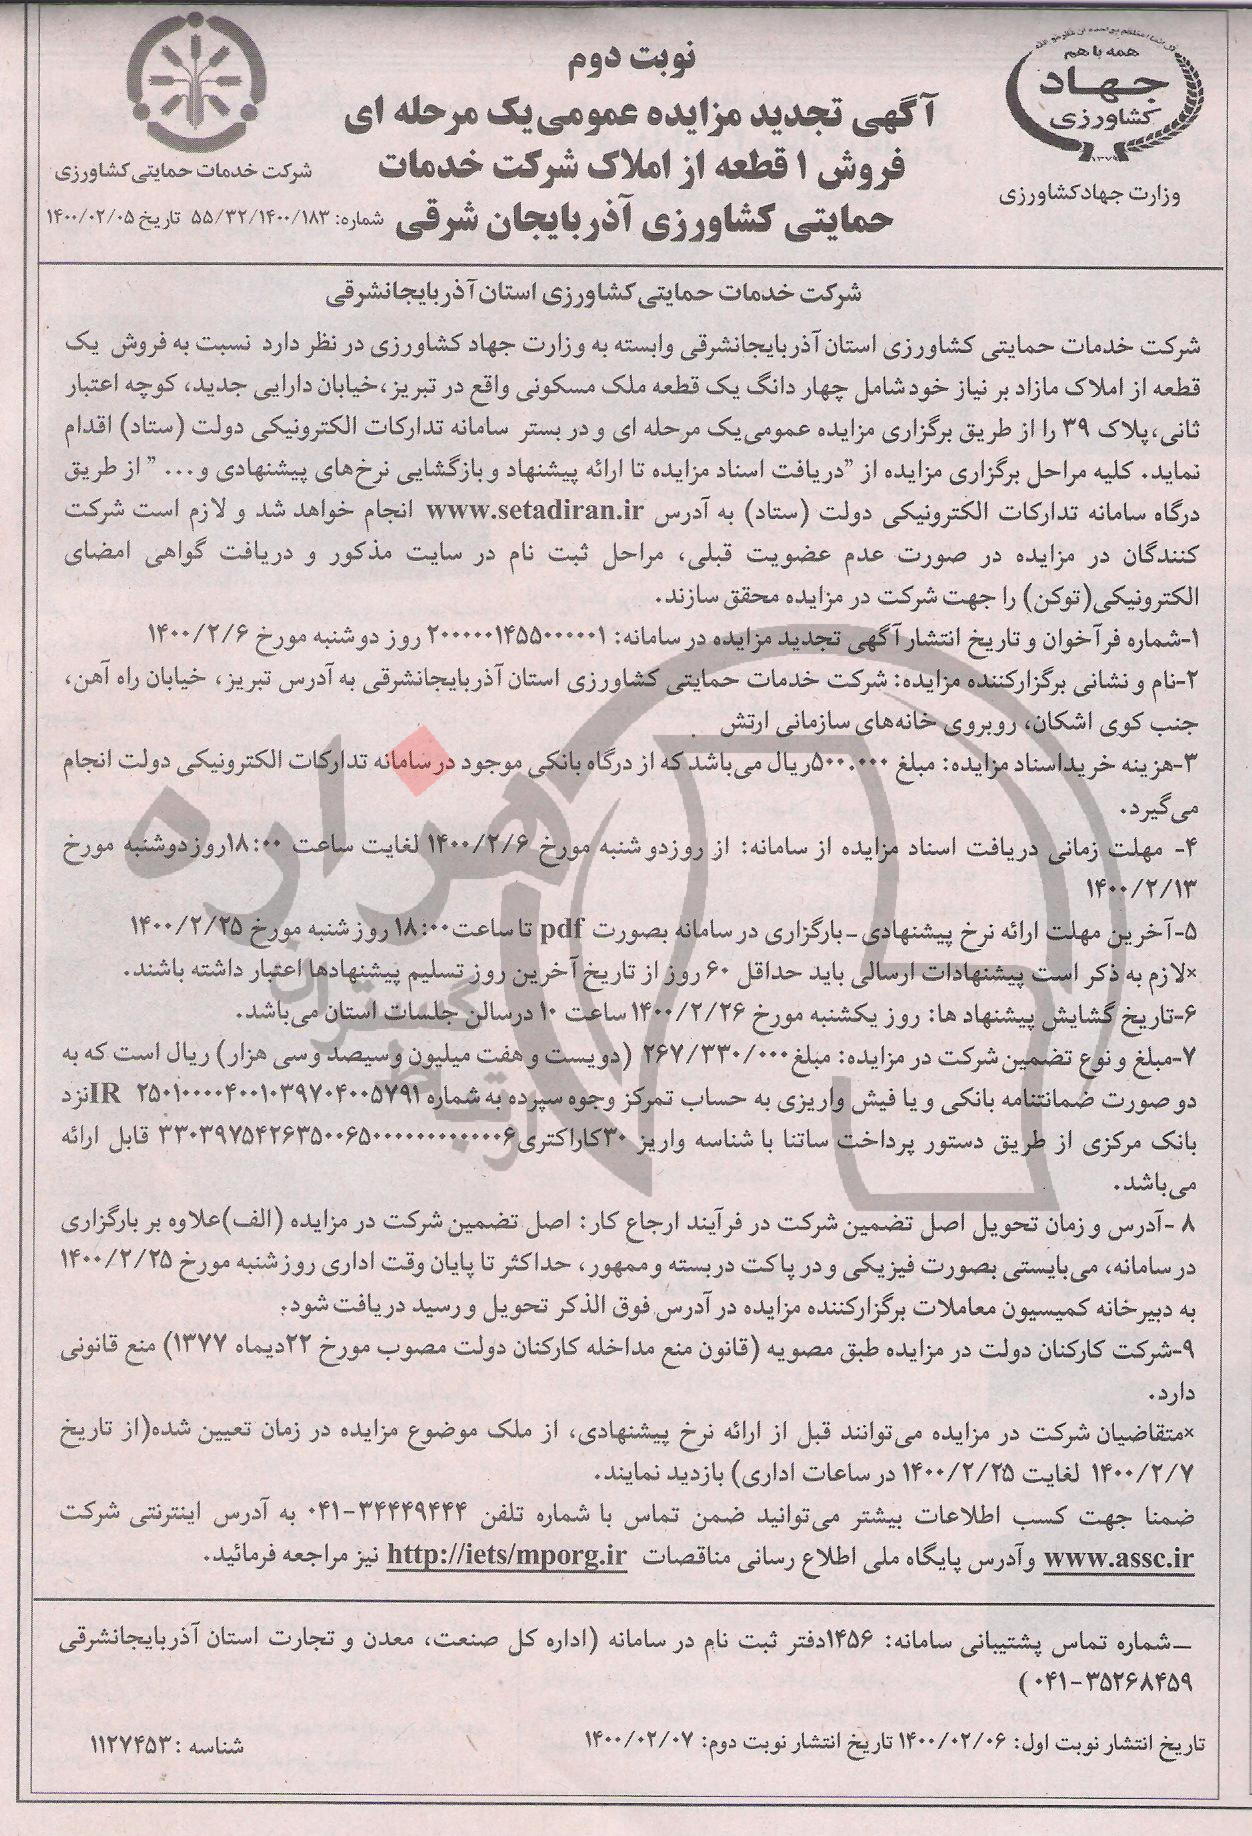 نوبت دوم
آگهی تجدید مزایده عمومی یک مرحله ای
فروش ۱ قطعه از املاک شرکت خدمات
حمایتی کشاورزی آذربایجان شرقی
همه با هم
جهاد
کشاورزی
وزارت جهادکشاورزی
شرکت خدمات حمایتی کشاورزی
شماره: ۵۵/۳۲/۱۴۰۰/۱۸۳ تاریخ ۱۴۰۰/۰۲/۰۵
شرکت خدمات حمایتی کشاورزی استان آذربایجانشرقی
شرکت خدمات حمایتی کشاورزی استان آذربایجانشرقی وابسته به وزارت جهاد کشاورزی در نظر دارد نسبت به فروش یک
قطعه از املاک مازاد بر نیاز خود شامل چهار دانگ یک قطعه ملک مسکونی واقع در تبریز،خیابان دارایی جدید، کوچه اعتبار
ثانی،پلاک ۳۹ را از طریق برگزاری مزایده عمومی یک مرحله ای و در بستر سامانه تدارکات الکترونیکی دولت (ستاد) اقدام
نماید. کلیه مراحل برگزاری مزایده از "دریافت اسناد مزایده تا ارائه پیشنهاد و بازگشایی نرخ‌های پیشنهادی و..." از طریق
درگاه سامانه تدارکات الکترونیکی دولت (ستاد) به آدرس www.setadiran.ir انجام خواهد شد و لازم است شرکت
کنندگان در مزایده در صورت عدم عضویت قبلی، مراحل ثبت نام در سایت مذکور و دریافت گواهی امضای
الکترونیکی(توکن) را جهت شرکت در مزایده محقق سازند.
۱-شماره فرآخوان و تاریخ انتشار آگهی تجدید مزایده در سامانه: ۲۰۰۰۰۰۱۴۵۵۰۰۰۰۰۱ روز دوشنبه مورخ ۱۴۰۰/۲/۶
۲-نام و نشانی برگزارکننده مزایده: شرکت خدمات حمایتی کشاورزی استان آذربایجانشرقی به آدرس تبریز، خیابان راه آهن،
جنب کوی اشکان، روبروی خانه‌های سازمانی ارتش
۳-هزینه خریداسناد مزایده: مبلغ ۵۰۰.۰۰۰ریال می‌باشد که از درگاه بانکی موجود درسامانه تدارکات الکترونیکی دولت انجام
می‌گیرد.
۴- مهلت زمانی دریافت اسناد مزایده از سامانه: از روزدوشنبه مورخ ۱۴۰۰/۲/۶ لغایت ساعت ۱۸:۰۰روزدوشنبه مورخ
۱۴۰۰/۲/۱۳
۵-آخرین مهلت ارائه نرخ پیشنهادی-بارگزاری در سامانه بصورت pdf تا ساعت۱۸:۰۰ روز شنبه مورخ ۱۴۰۰/۲/۲۵
×لازم به ذکر است پیشنهادات ارسالی باید حداقل ۶۰ روز از تاریخ آخرین روز تسلیم پیشنهادها اعتبار داشته باشند.
۶-تاریخ گشایش پیشنهاد ها: روز یکشنبه مورخ ۱۴۰۰/۲/۲۶ ساعت ۱۰ درسالن جلسات استان می‌باشد.
۷-مبلغ و نوع تضمین شرکت در مزایده: مبلغ۲۶۷/۳۳۰/۰۰۰ (دویست و هفت میلیون و سیصد و سی هزار) ریال است که به
دو صورت ضمانتنامه بانکی و یا فیش واریزی به حساب تمرکز وجوه سپرده به شماره IR ۲۵۰۱۰۰۰۰۴۰۰۱۰۳۹۷۰۴۰۰۵۷۹۱نزد
بانک مرکزی از طریق دستور پرداخت ساتنا با شناسه واریز ۳۰کاراکتری۳۳۰۳۹۷۵۴۲۶۳۵۰۰۶۵۰۰۰۰۰۰۰۰۰۰۰۰۶ قابل ارائه
می‌باشد.
۸ -آدرس و زمان تحویل اصل تضمین شرکت در فرآیند ارجاع کار: اصل تضمین شرکت در مزایده (الف)علاوه بر بارگزاری
در سامانه، می‌بایستی بصورت فیزیکی و در پاکت دربسته و ممهور، حداکثر تا پایان وقت اداری روز شنبه مورخ ۱۴۰۰/۲/۲۵
به دبیرخانه کمیسیون معاملات برگزارکننده مزایده در آدرس فوق الذکر تحویل و رسید دریافت شود.
۹-شرکت کارکنان دولت در مزایده طبق مصوبه (قانون منع مداخله کارکنان دولت مصوب مورخ ۲۲دیماه ۱۳۷۷) منع قانونی
دارد.
×متقاضیان شرکت در مزایده می‌توانند قبل از ارائه نرخ پیشنهادی، از ملک موضوع مزایده در زمان تعیین شده(از تاریخ
۱۴۰۰/۲/۷ لغایت ۱۴۰۰/۲/۲۵ در ساعات اداری) بازدید نمایند.
ضمنا جهت کسب اطلاعات بیشتر می‌توانید ضمن تماس با شماره تلفن ۳۴۴۴۹۴۴۴-۰۴۱ به آدرس اینترنتی شرکت
www.assc.ir وآدرس پایگاه ملی اطلاع رسانی مناقصات http://iets/mporg.ir نیز مراجعه فرمائید.
-شماره تماس پشتیبانی سامانه: ۱۴۵۶دفتر ثبت نام در سامانه (اداره کل صنعت، معدن و تجارت استان آذربایجانشرقی
۳۵۲۶۸۴۵۹-۰۴۱)
تاریخ انتشار نوبت اول: ۱۴۰۰/۰۲/۰۶ تاریخ انتشار نوبت دوم: ۱۴۰۰/۰۲/۰۷
شناسه :۱۱۲۷۴۵۳
هزاره